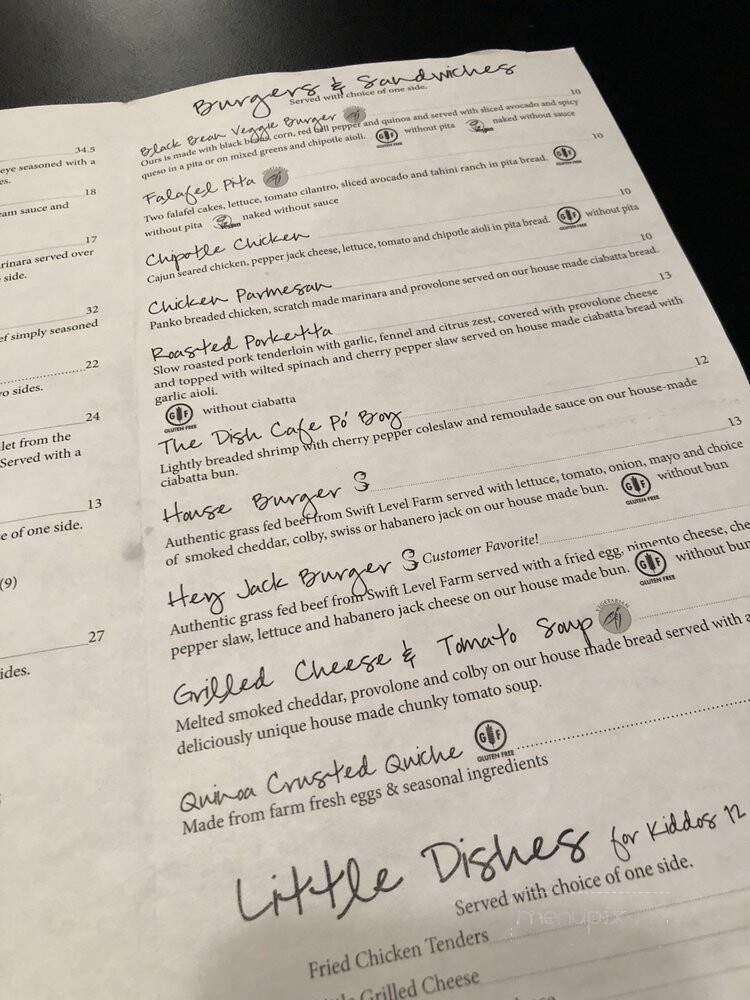 34.5
eye seasoned with a
es.
18
am sauce and
17
rinara served over
side.
32
ef simply seasoned
22
o sides.
24
let from the
Served with a
13
e of one side.
(9)
27
ides.
Burgers & Sandwiches
Served with choice of one side.
Black Bean Veggie Burger 10
Ours is made with black beans, corn, red bell pepper and quinoa and served with sliced avocado and spicy
queso in a pita or on mixed greens and chipotle aioli. GF GLUTEN FREE without pita naked without sauce
Falafel Pita 10
Two falafel cakes, lettuce, tomato cilantro, sliced avocado and tahini ranch in pita bread. GF GLUTEN FREE
without pita naked without sauce
Chipotle Chicken 10
Cajun seared chicken, pepper jack cheese, lettuce, tomato and chipotle aioli in pita bread. GF GLUTEN FREE without pita
Chicken Parmesan 10
Panko breaded chicken, scratch made marinara and provolone served on our house made ciabatta bread.
Roasted Porketta 13
Slow roasted pork tenderloin with garlic, fennel and citrus zest, covered with provolone cheese
and topped with wilted spinach and cherry pepper slaw served on house made ciabatta bread with
garlic aioli.
GF GLUTEN FREE without ciabatta
The Dish Cafe Po' Boy 12
Lightly breaded shrimp with cherry pepper coleslaw and remoulade sauce on our house-made
ciabatta bun.
House Burger 13
Authentic grass fed beef from Swift Level Farm served with lettuce, tomato, onion, mayo and choice
of smoked cheddar, colby, swiss or habanero jack on our house made bun. GF GLUTEN FREE without bun
Hey Jack Burger Customer Favorite!
Authentic grass fed beef from Swift Level Farm served with a fried egg, pimento cheese, che
pepper slaw, lettuce and habanero jack cheese on our house made bun. GF GLUTEN FREE without bun
Grilled Cheese & Tomato Soup VEGETARIAN
Melted smoked cheddar, provolone and colby on our house made bread served with a
deliciously unique house made chunky tomato soup.
Quinoa Crusted Quiche GF GLUTEN FREE
Made from farm fresh eggs & seasonal ingredients
Little Dishes for Kiddos 12
Served with choice of one side.
menupix
Fried Chicken Tenders
Grilled Cheese